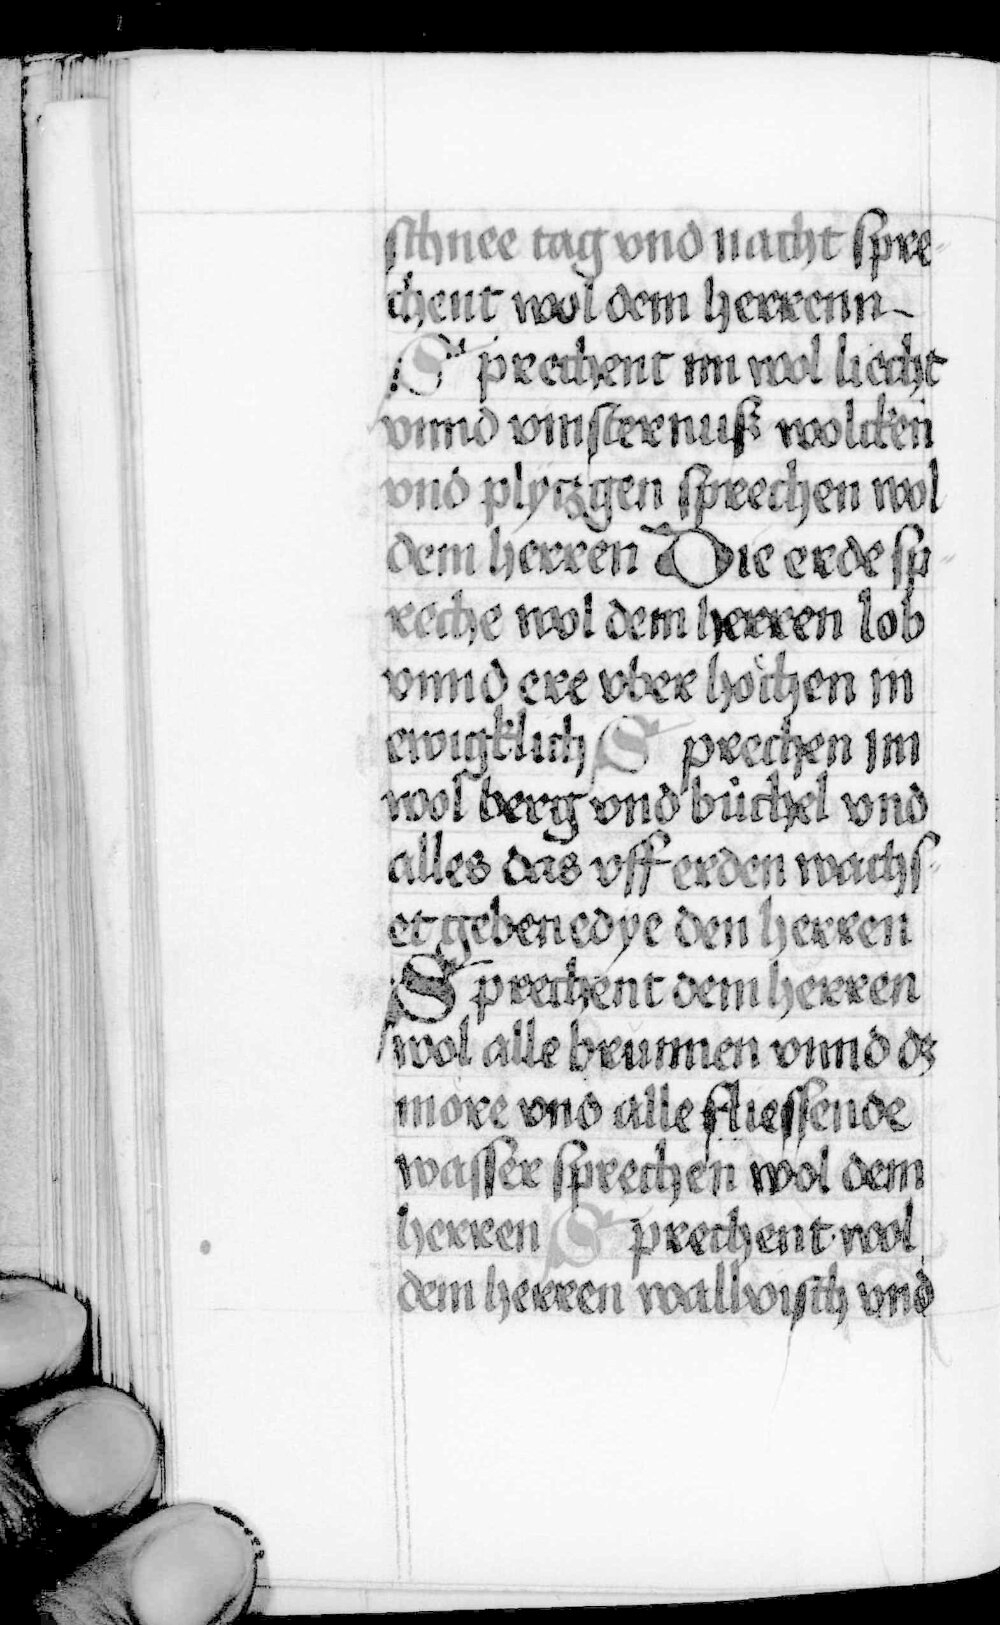 schnee tag vnd nacht spre-
chent wol dem herrenn
Sprechent im wol liecht
vnnd vinsternuß wolcken
vnd plytzgen sprechen wol
dem herren Die erde sp-
reche wol dem herren lob
vnnd ere vber höchen in
ewigklich Sprechen im
wol berg vnd büchel vnd
alles das vff erden wachs-
et gebenedye den herren
Sprechent dem herren
wol alle brunnen vnnd dz
möre vnd alle fliessende
wasser sprechen wol dem
herren Sprechent wol
dem herren wallvisch vnd